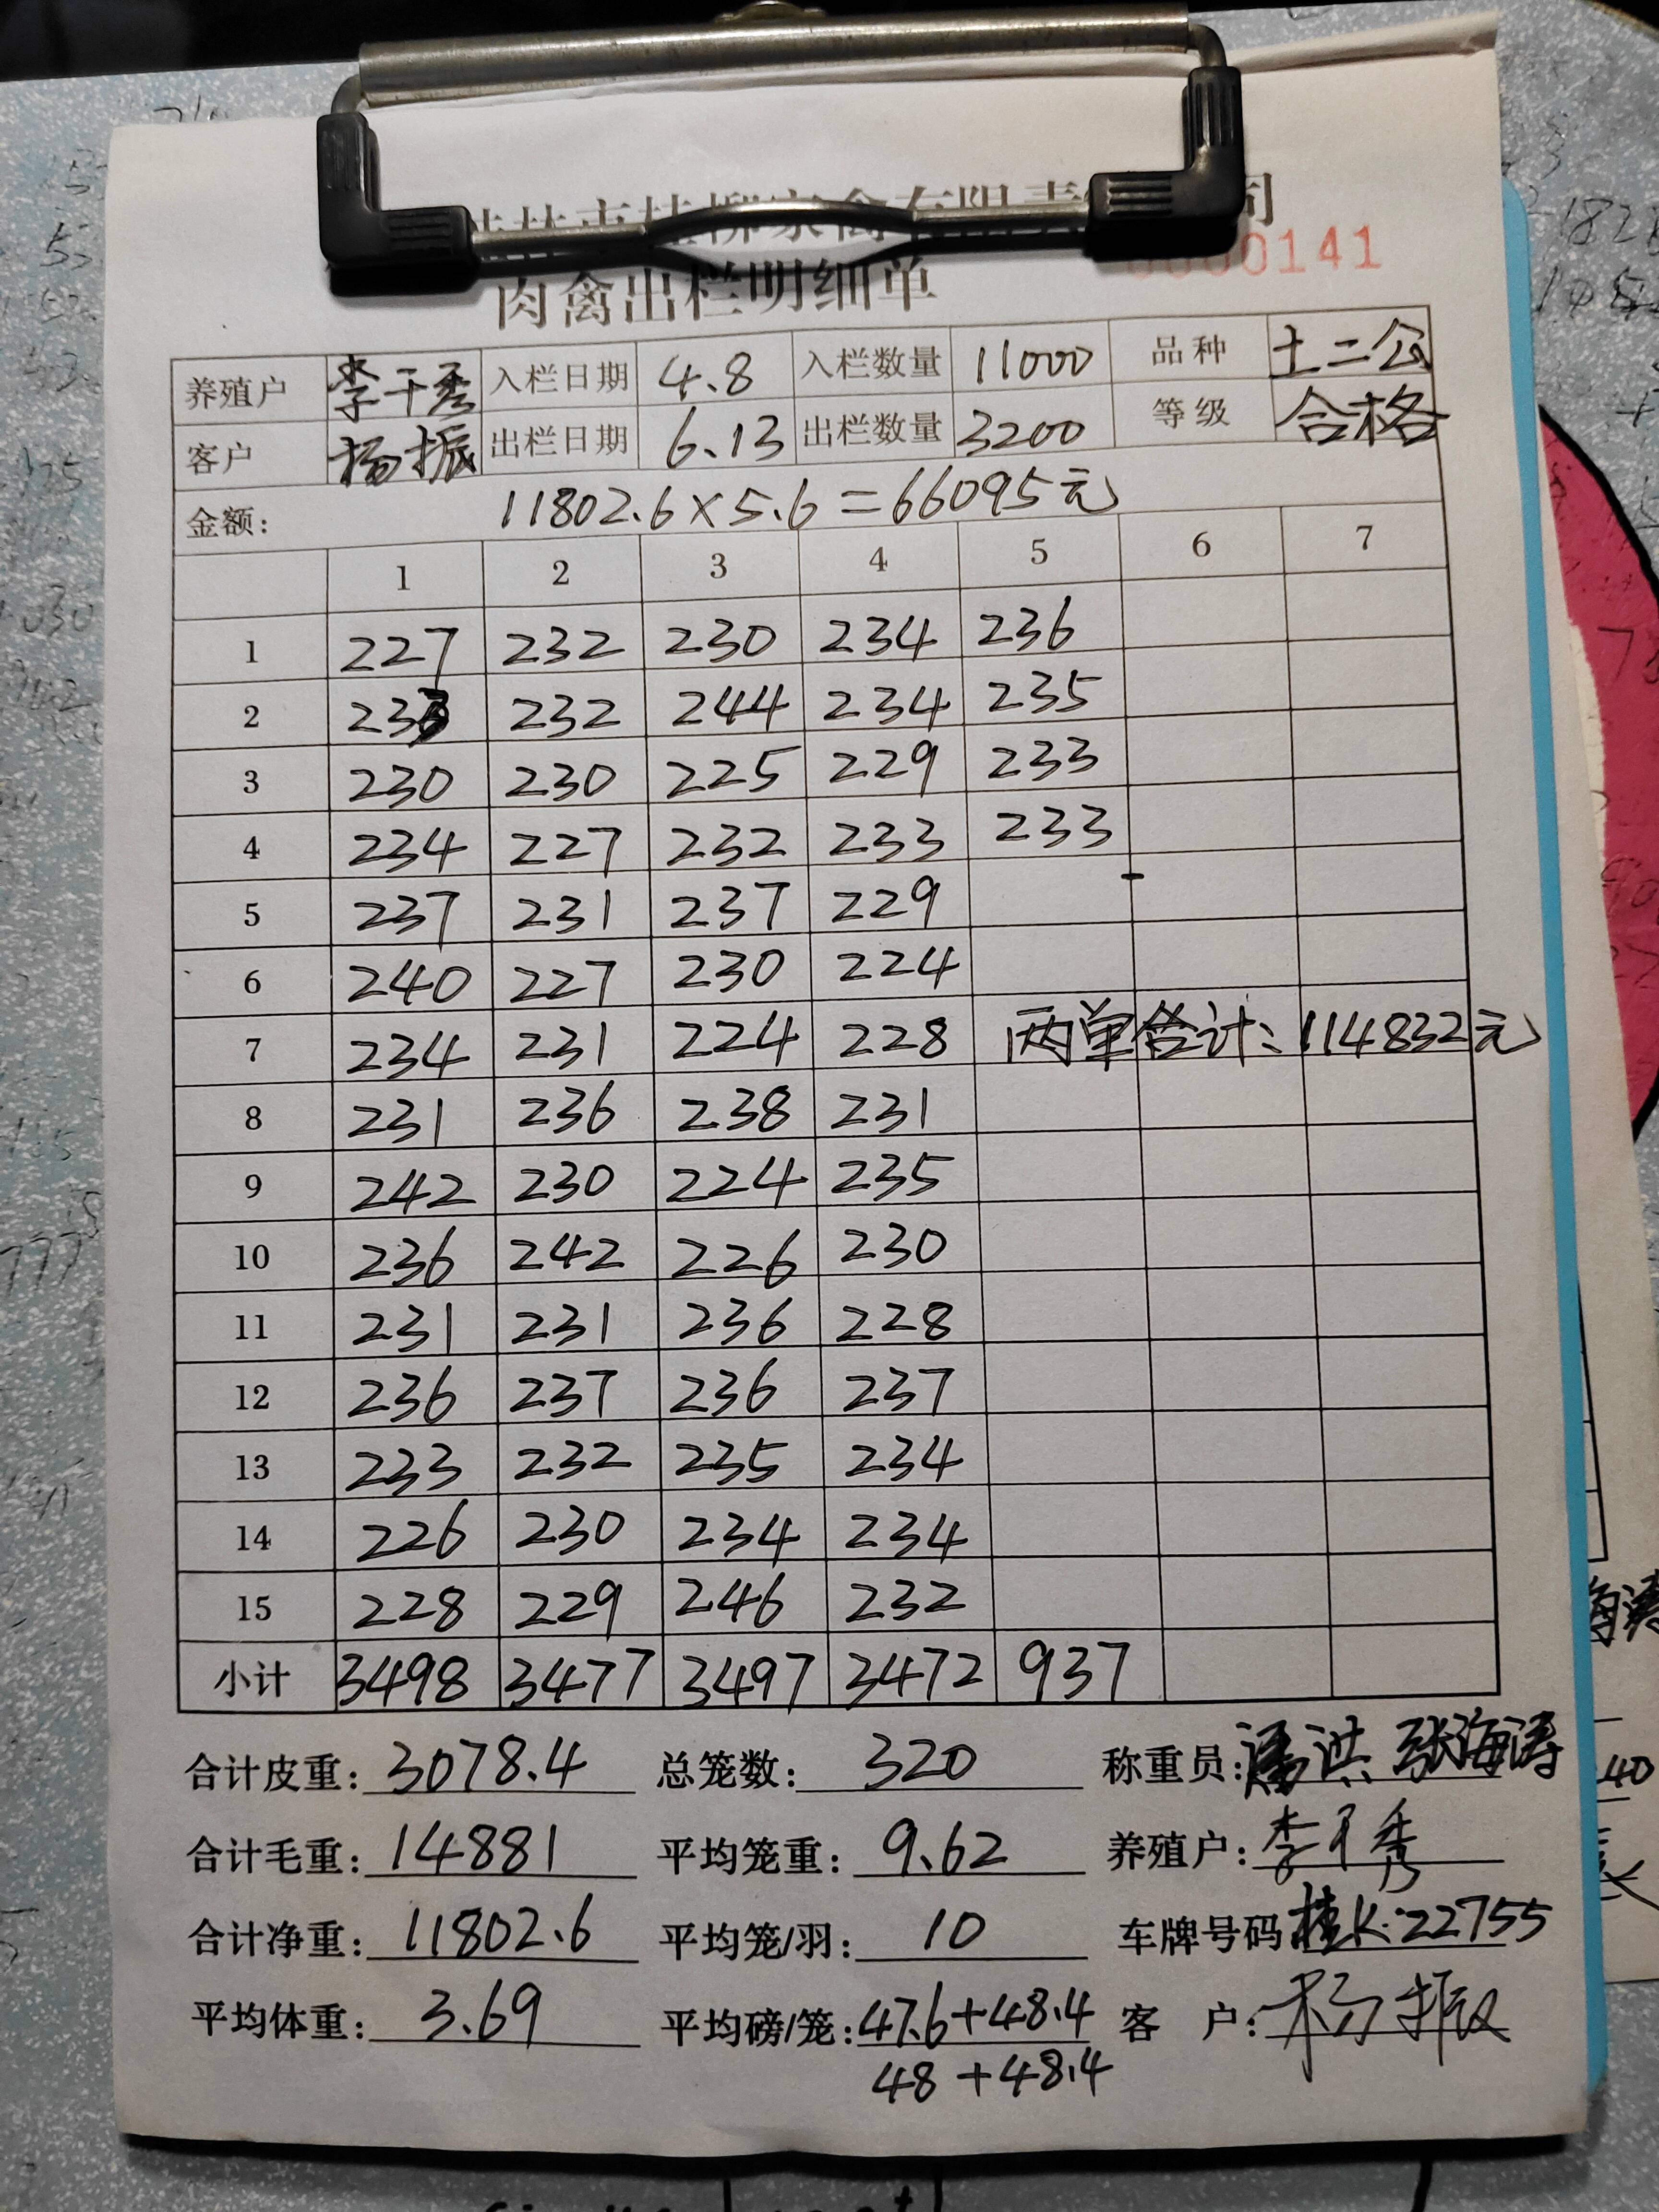 桂林市桂柳家禽有限责任公司
0000141
肉禽出栏明细单
养殖户 李干秀 入栏日期 4.8 入栏数量 11000 品种 土二公
客户 杨振 出栏日期 6.13 出栏数量 3200 等级 合格
金额: 11802.6×5.6=66095元
1 2 3 4 5 6 7
1 227 232 230 234 236
2 233 232 244 234 235
3 230 230 225 229 233
4 234 227 232 233 233
5 237 231 237 229
6 240 227 230 224
7 234 231 224 228 两单合计:114832元
8 231 236 238 231
9 242 230 224 235
10 236 242 226 230
11 231 231 236 228
12 236 237 236 237
13 233 232 235 234
14 226 230 234 234
15 228 229 246 232
小计 3498 3477 3497 3472 937
合计皮重: 3078.4 总笼数: 320 称重员: 洪 张海涛
合计毛重: 14881 平均笼重: 9.62 养殖户: 李干秀
合计净重: 11802.6 平均笼/羽: 10 车牌号码 桂K·22755
平均体重: 3.69 平均磅/笼: 47.6+48.4 客户: 杨振
48+48.4